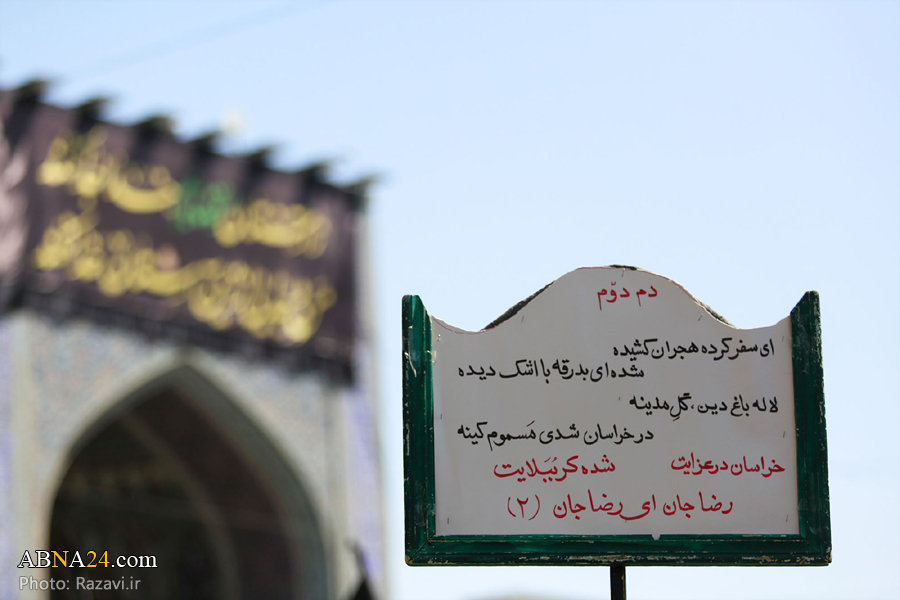 دم دوّم
ای سفر کرده هجران کشیده
شده ای بدرقه با اشک دیده
لاله باغ دین، گلِ مدینه
در خراسان شدی مَسموم کینه
خراسان در عزایت شده کربُبَلایت
رضا جان ای رضا جان (۲)
ABNA24.com
Photo: Razavi.ir